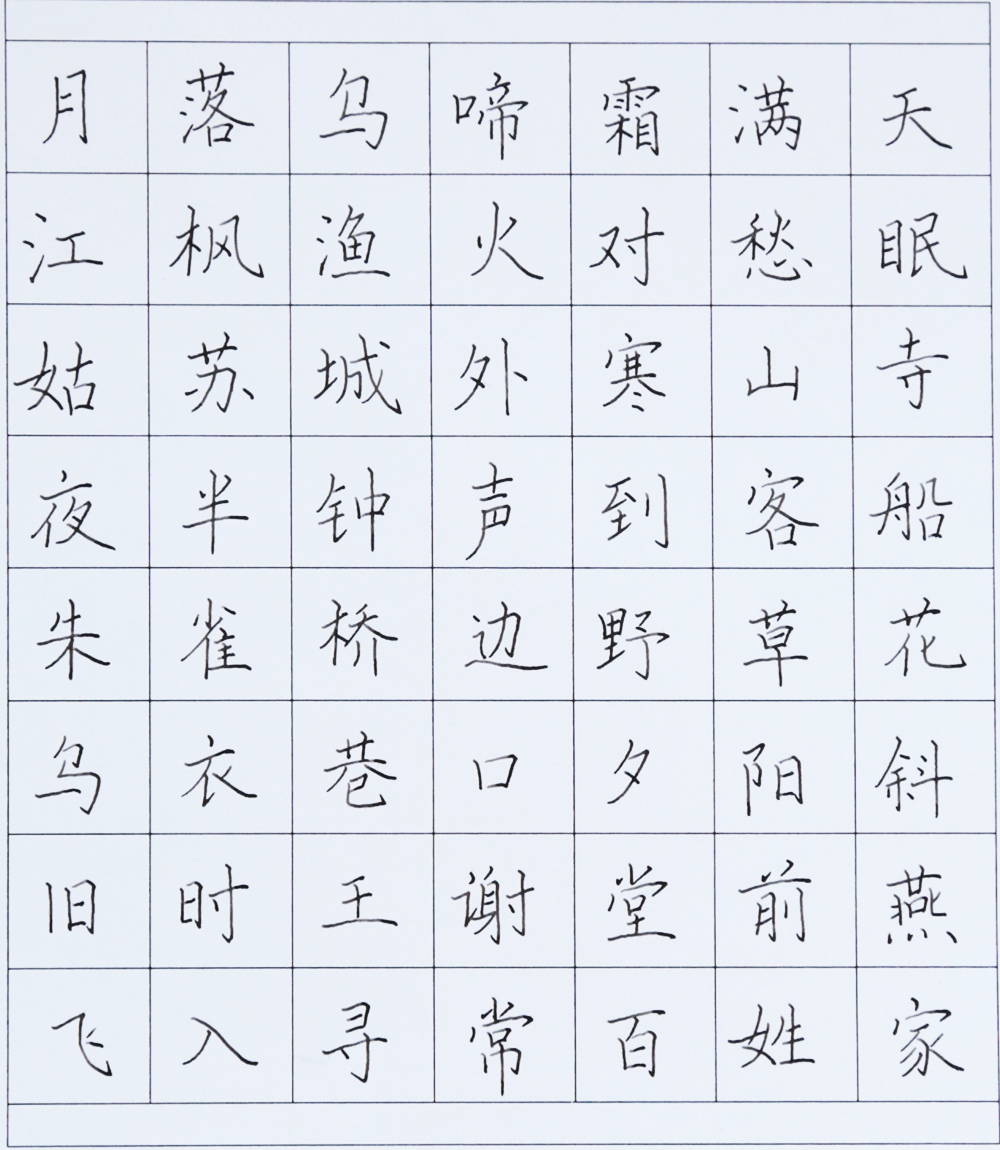 月落乌啼霜满天
江枫渔火对愁眠
姑苏城外寒山寺
夜半钟声到客船
朱雀桥边野草花
乌衣巷口夕阳斜
旧时王谢堂前燕
飞入寻常百姓家